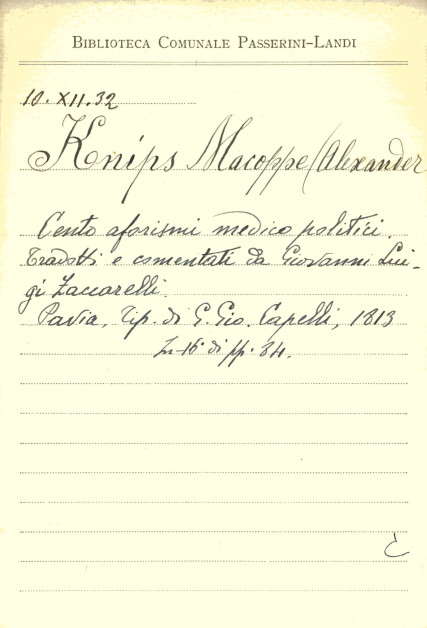 BIBLIOTECA COMUNALE PASSERINI-LANDI
10.XII.32
Knips Macoppe (Alexander
Cento aforismi medico politici.
Tradotti e comentati da Giovanni Lui-
gi Zaccarelli.
Pavia, Tip. di G. Gio. Capelli, 1813
In-16° di pp. 84.
C